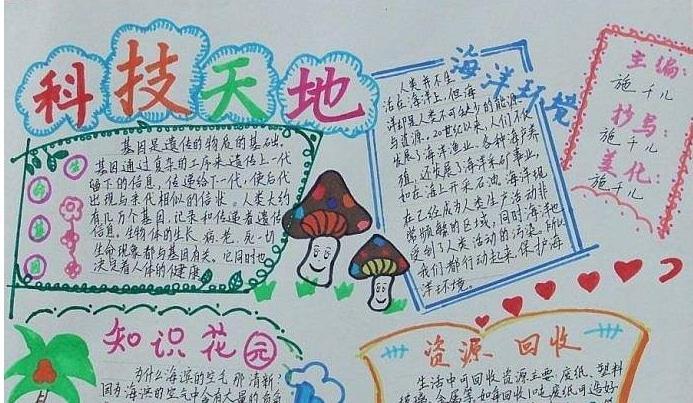 科技天地
基因是遗传的物质的基础。
基因通过复杂的工序来遗传上一代
留下的信息，传递给下一代，使后代
出现与亲代相似的信状。人类大约
有几万个基因，记录和传递着遗传
信息。生物体的生长、病、老、死一切
生命现象都与基因有关。它同时也
决定着人体的健康。
生
命
基
因
海洋环境
人类并不生
活在海洋上，但海
洋却是人类不可缺少的能源
与资源。20世纪以来，人们不仅
发展了海洋渔业，各种海产养
殖，还发展了海洋采矿事业，
如在海上开采石油。海洋现
在已经成为人类生产活动非
常频繁的区域，同时海洋也
受到了人类活动的污染。所以
我们都行动起来，保护海
洋环境。
主编：
施千儿
抄写：
施千儿
美化：
施千儿
知识花园
为什么海滨的空气那清新？
因为海滨的空气中含有大量的
资源回收
生活中可回收资源主要：废纸、塑料
玻璃、金属等，如每回收1吨废纸可造好